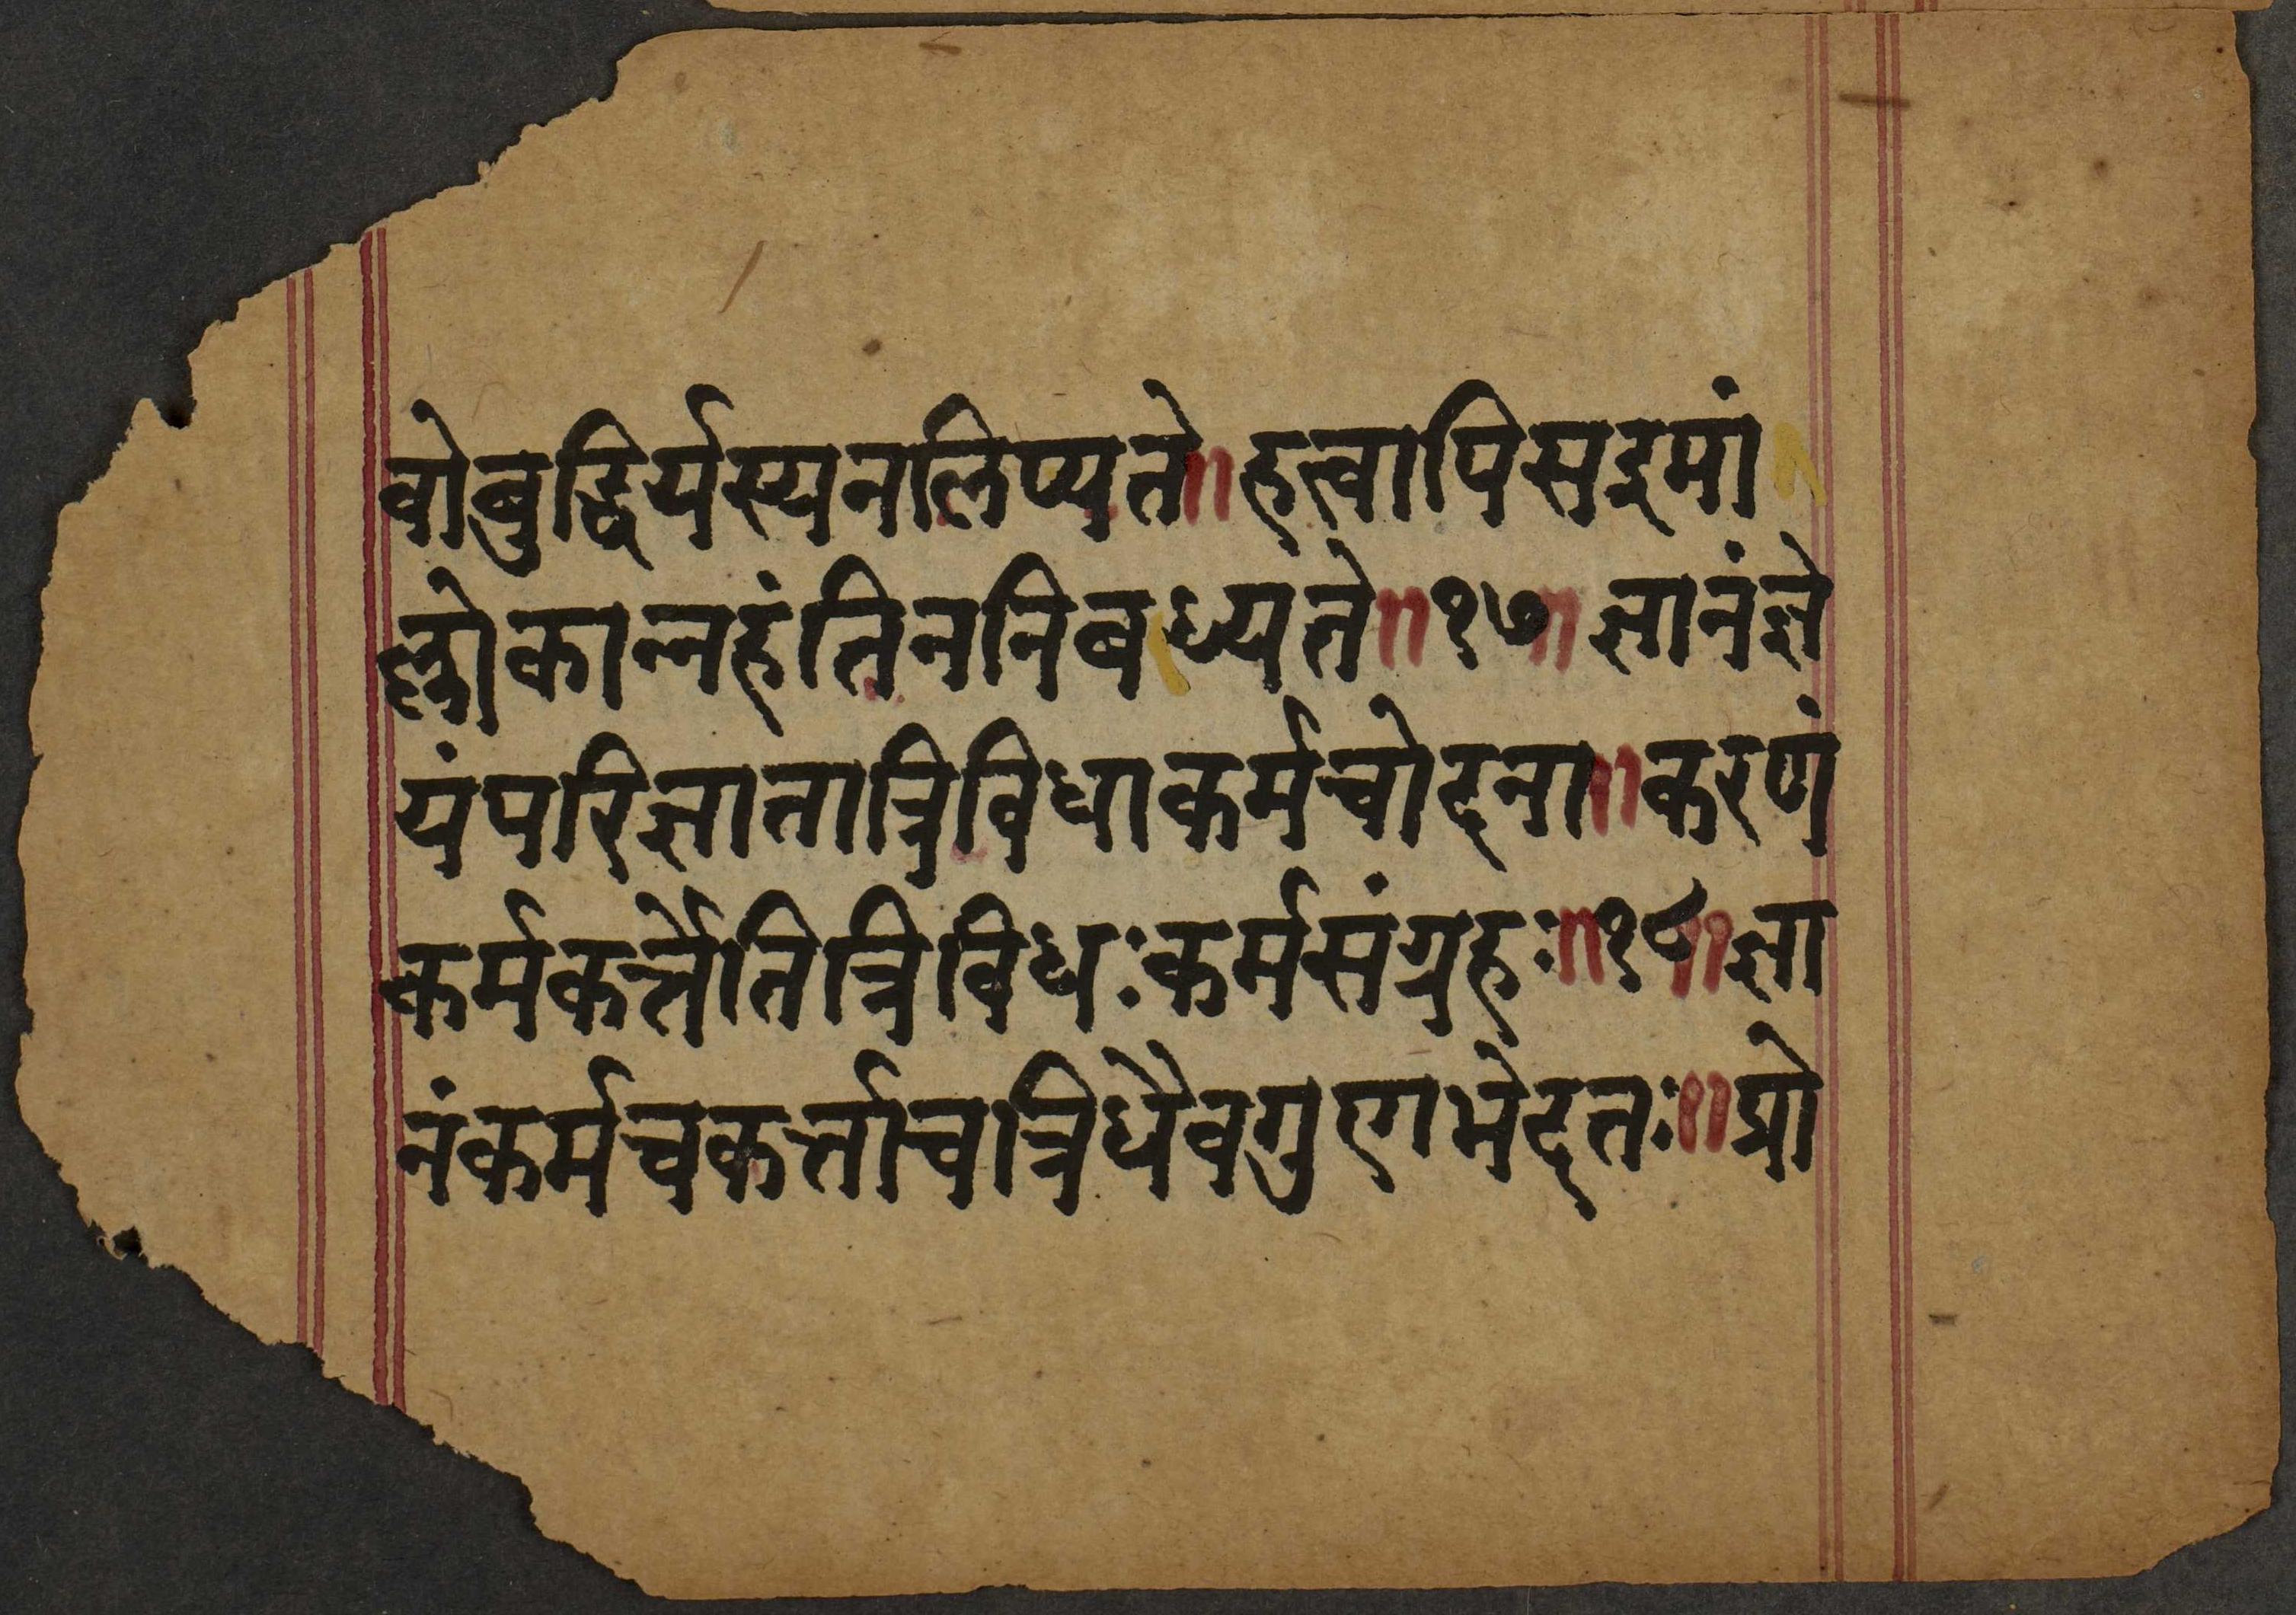 वोबुद्धिर्यस्यनलिप्यते॥हत्वापिसइमां
ल्लोकान्नहंतिननिबध्यते॥१७॥ज्ञानंज्ञे
यंपरिज्ञातात्रिविधाकर्मचोदना॥करणं
कर्मकर्त्तेतित्रिविधःकर्मसंग्रहः॥१८॥ज्ञा
नंकर्मचकर्त्ताचत्रिधैवगुणभेदतः॥प्रो